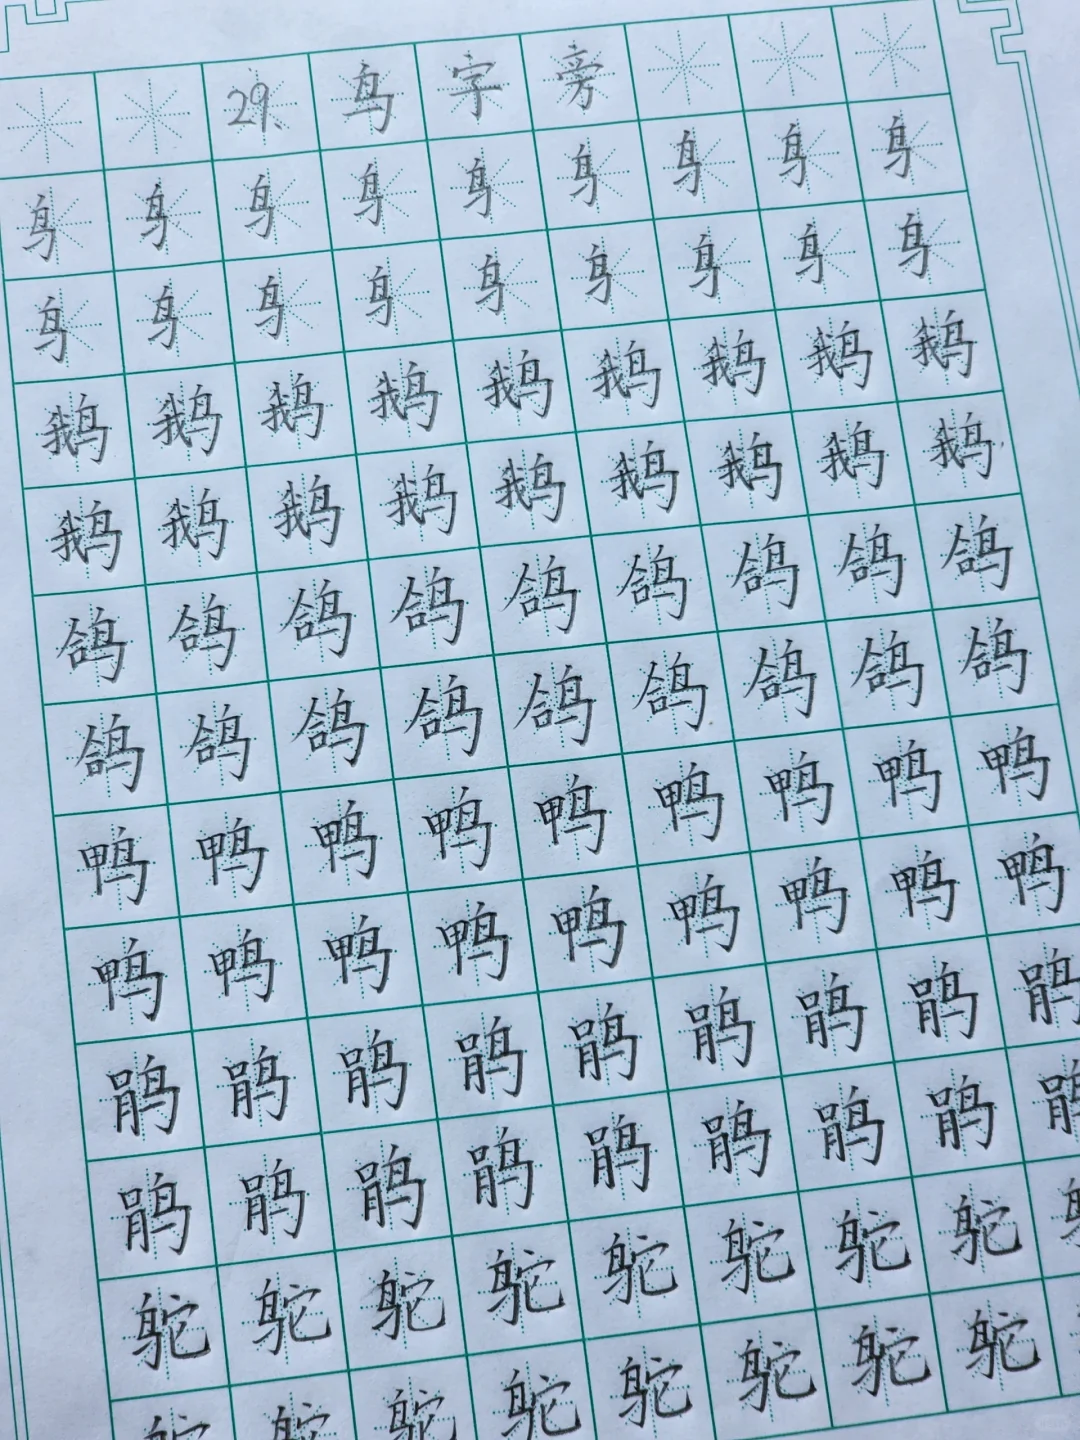 29. 鸟字旁
鸟鸟鸟鸟鸟鸟鸟鸟鸟
鸟鸟鸟鸟鸟鸟鸟鸟鸟
鹅鹅鹅鹅鹅鹅鹅鹅鹅
鹅鹅鹅鹅鹅鹅鹅鹅鹅
鸽鸽鸽鸽鸽鸽鸽鸽鸽
鸽鸽鸽鸽鸽鸽鸽鸽鸽
鸭鸭鸭鸭鸭鸭鸭鸭鸭
鸭鸭鸭鸭鸭鸭鸭鸭鸭
鹃鹃鹃鹃鹃鹃鹃鹃鹃
鹃鹃鹃鹃鹃鹃鹃鹃鹃
鸵鸵鸵鸵鸵鸵鸵鸵
鸵鸵鸵鸵鸵鸵鸵鸵